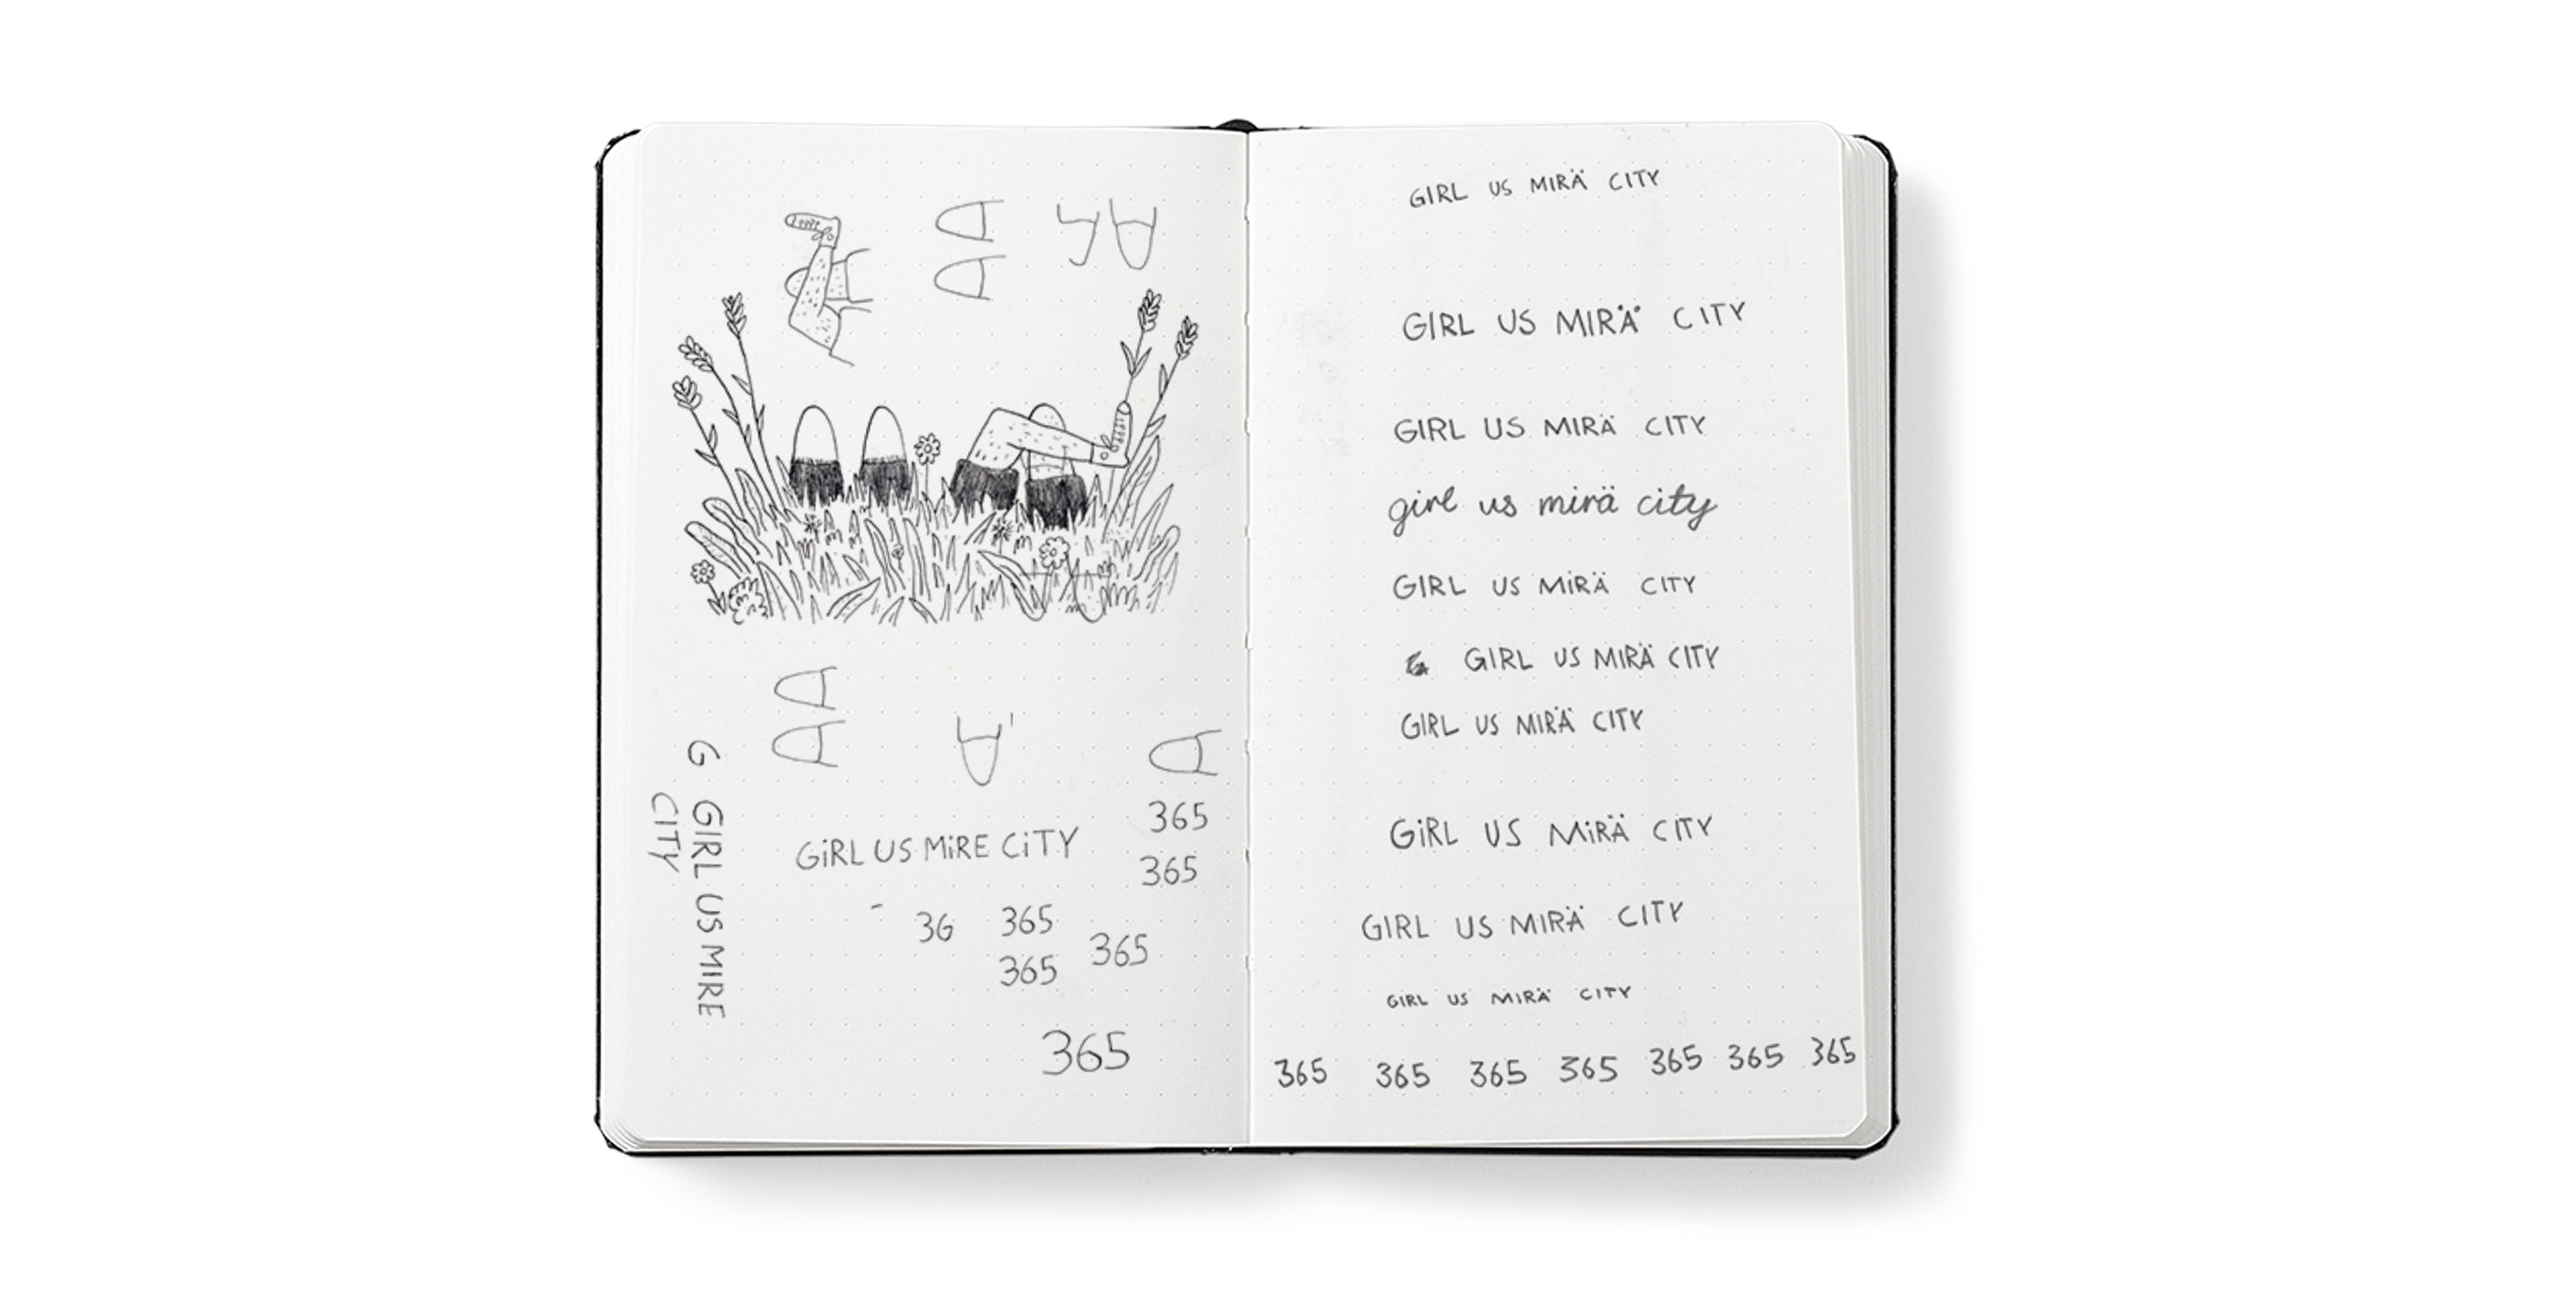 G
GIRL US MIRE
CITY
GiRL US MiRE CiTY
365
365
36 365
365
365
365
GIRL US MIRÄ CITY
GIRL US MIRÄ CITY
GIRL US MIRÄ CITY
girl us mirä city
GIRL US MiRÄ CITY
GIRL US MIRÄ CITY
GIRL US MIRÄ CITY
GiRL US MiRÄ CITY
GIRL US MIRÄ CITY
GIRL US MIRÄ CITY
365 365 365 365 365 365 365